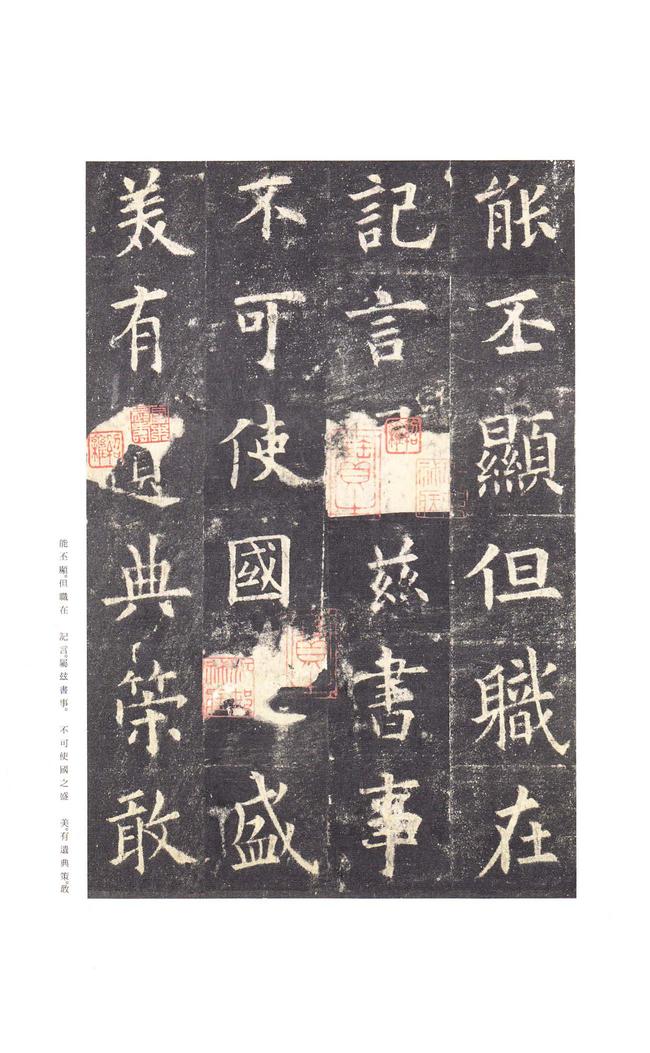 能丕顯但職在
記言茲書事
不可使國之盛
美有遺典策敢
能丕顯。但職在　記言。屬玆書事。　不可使國之盛　美。有遺典策。敢